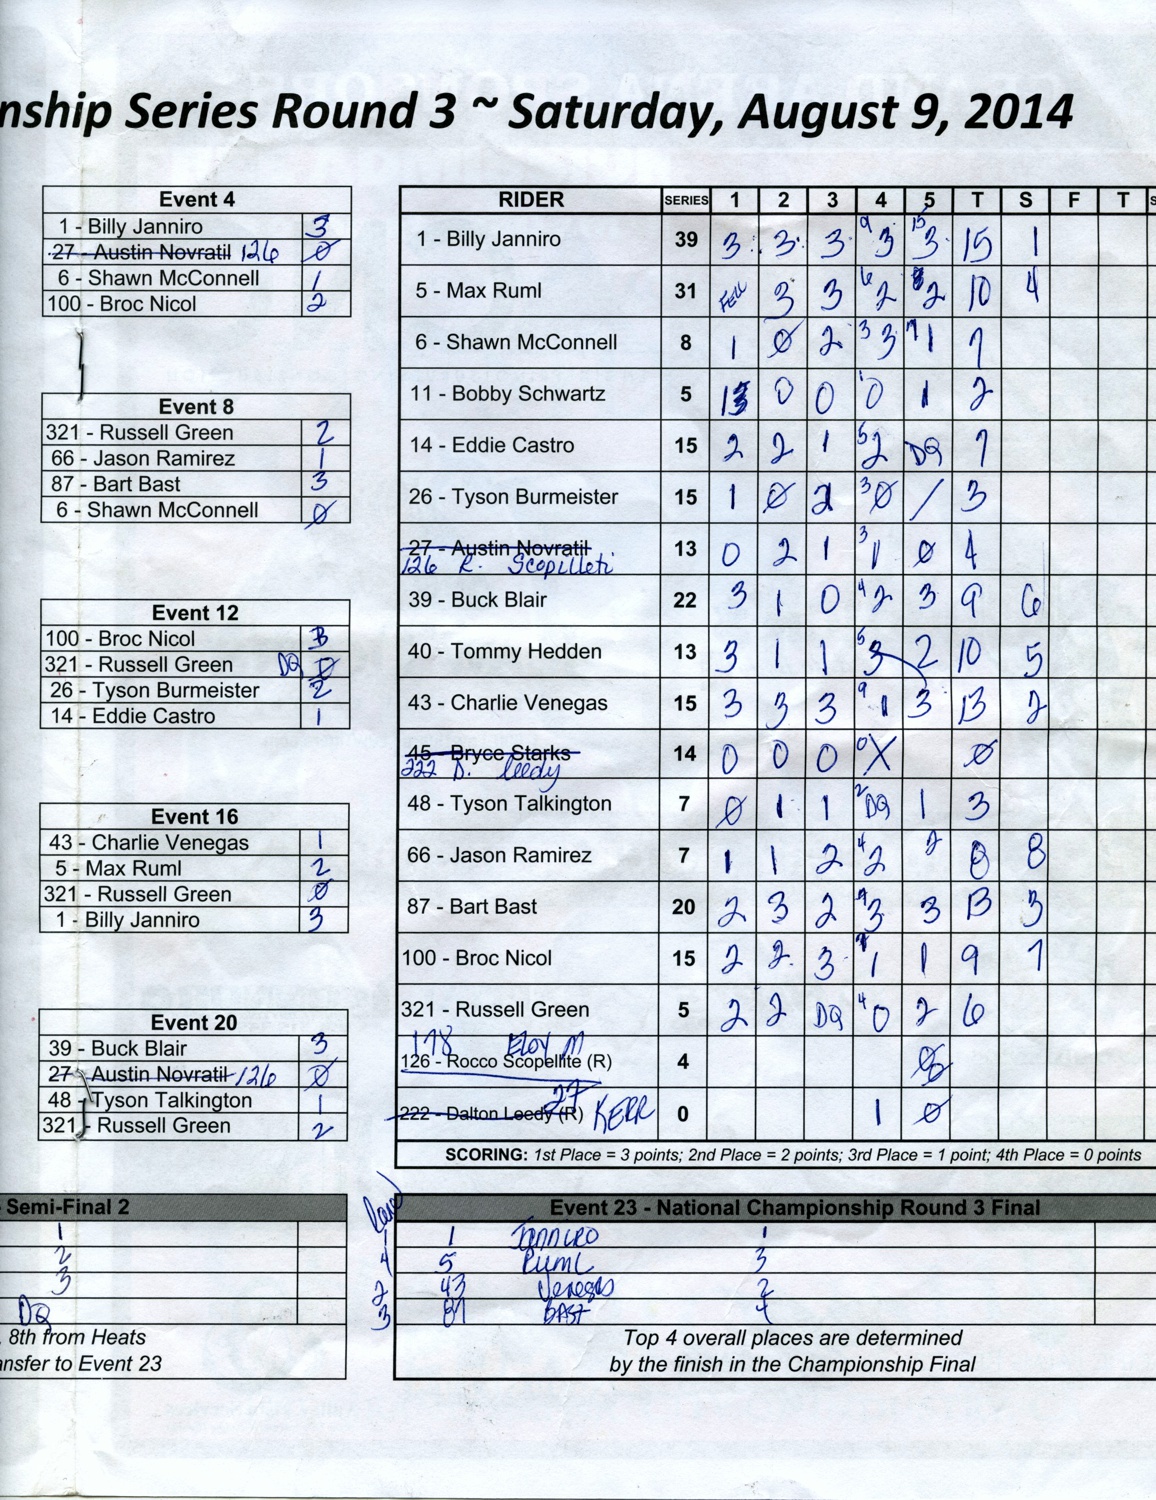 nship Series Round 3 ~ Saturday, August 9, 2014
Event 4
1 - Billy Janniro 3
27 - Austin Novratil 126 0
6 - Shawn McConnell 1
100 - Broc Nicol 2
Event 8
321 - Russell Green 2
66 - Jason Ramirez 1
87 - Bart Bast 3
6 - Shawn McConnell 0
Event 12
100 - Broc Nicol 3
321 - Russell Green DQ 0
26 - Tyson Burmeister 2
14 - Eddie Castro 1
Event 16
43 - Charlie Venegas 1
5 - Max Ruml 2
321 - Russell Green 0
1 - Billy Janniro 3
Event 20
39 - Buck Blair 3
27 - Austin Novratil 126 0
48 - Tyson Talkington 1
321 - Russell Green 2
Semi-Final 2
1
2
3
DQ
8th from Heats
nsfer to Event 23
RIDER SERIES 1 2 3 4 5 T S F T S
1 - Billy Janniro 39 3 3 3 9 3 15 3 15 1
5 - Max Ruml 31 Fell 3 3 6 2 8 2 10 4
6 - Shawn McConnell 8 1 0 2 3 3 1 7
11 - Bobby Schwartz 5 0 0 0 1 2
14 - Eddie Castro 15 2 2 1 5 2 DQ 7
26 - Tyson Burmeister 15 1 0 2 3 0 / 3
27 - Austin Novratil 13 0 2 1 3 1 0 4
126 R. Scopilleti
39 - Buck Blair 22 3 1 0 4 2 3 9 6
40 - Tommy Hedden 13 3 1 1 5 3 2 10 5
43 - Charlie Venegas 15 3 3 3 9 1 3 13 2
45 - Bryce Starks 14 0 0 0 0 X 0
222 D. Leedy
48 - Tyson Talkington 7 0 1 1 2 DQ 1 3
66 - Jason Ramirez 7 1 1 2 4 2 2 8 8
87 - Bart Bast 20 2 3 2 3 3 13 3
100 - Broc Nicol 15 2 2 3 1 1 9 7
321 - Russell Green 5 2 2 DQ 4 0 2 6
178 Eloy M
126 - Rocco Scopellite (R) 4
27
222 - Dalton Leedy (R) KERR 0 1 0
SCORING: 1st Place = 3 points; 2nd Place = 2 points; 3rd Place = 1 point; 4th Place = 0 points
Event 23 - National Championship Round 3 Final
1 1 Janniro 1
4 5 Ruml 3
2 43 Venegas 2
3 87 BAST 4
Top 4 overall places are determined
by the finish in the Championship Final